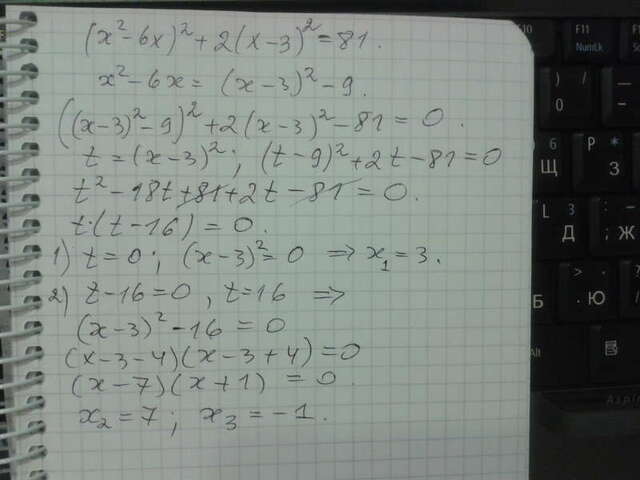 (x²-6x)²+2(x-3)²=81.
x²-6x=(x-3)²-9.
((x-3)²-9)²+2(x-3)²-81=0.
t=(x-3)²; (t-9)²+2t-81=0
t²-18t+81+2t-81=0.
t·(t-16)=0.
1) t=0; (x-3)²=0 ⇒ x₁=3.
2) t-16=0, t=16 ⇒
(x-3)²-16=0
(x-3-4)(x-3+4)=0
(x-7)(x+1)=0.
x₂=7; x₃=-1.
F10
F11
NumLk
) /
0
: *
Р
З
Щ
L 3
Д
: ;
Ж
Б
> .
. Ю
Alt